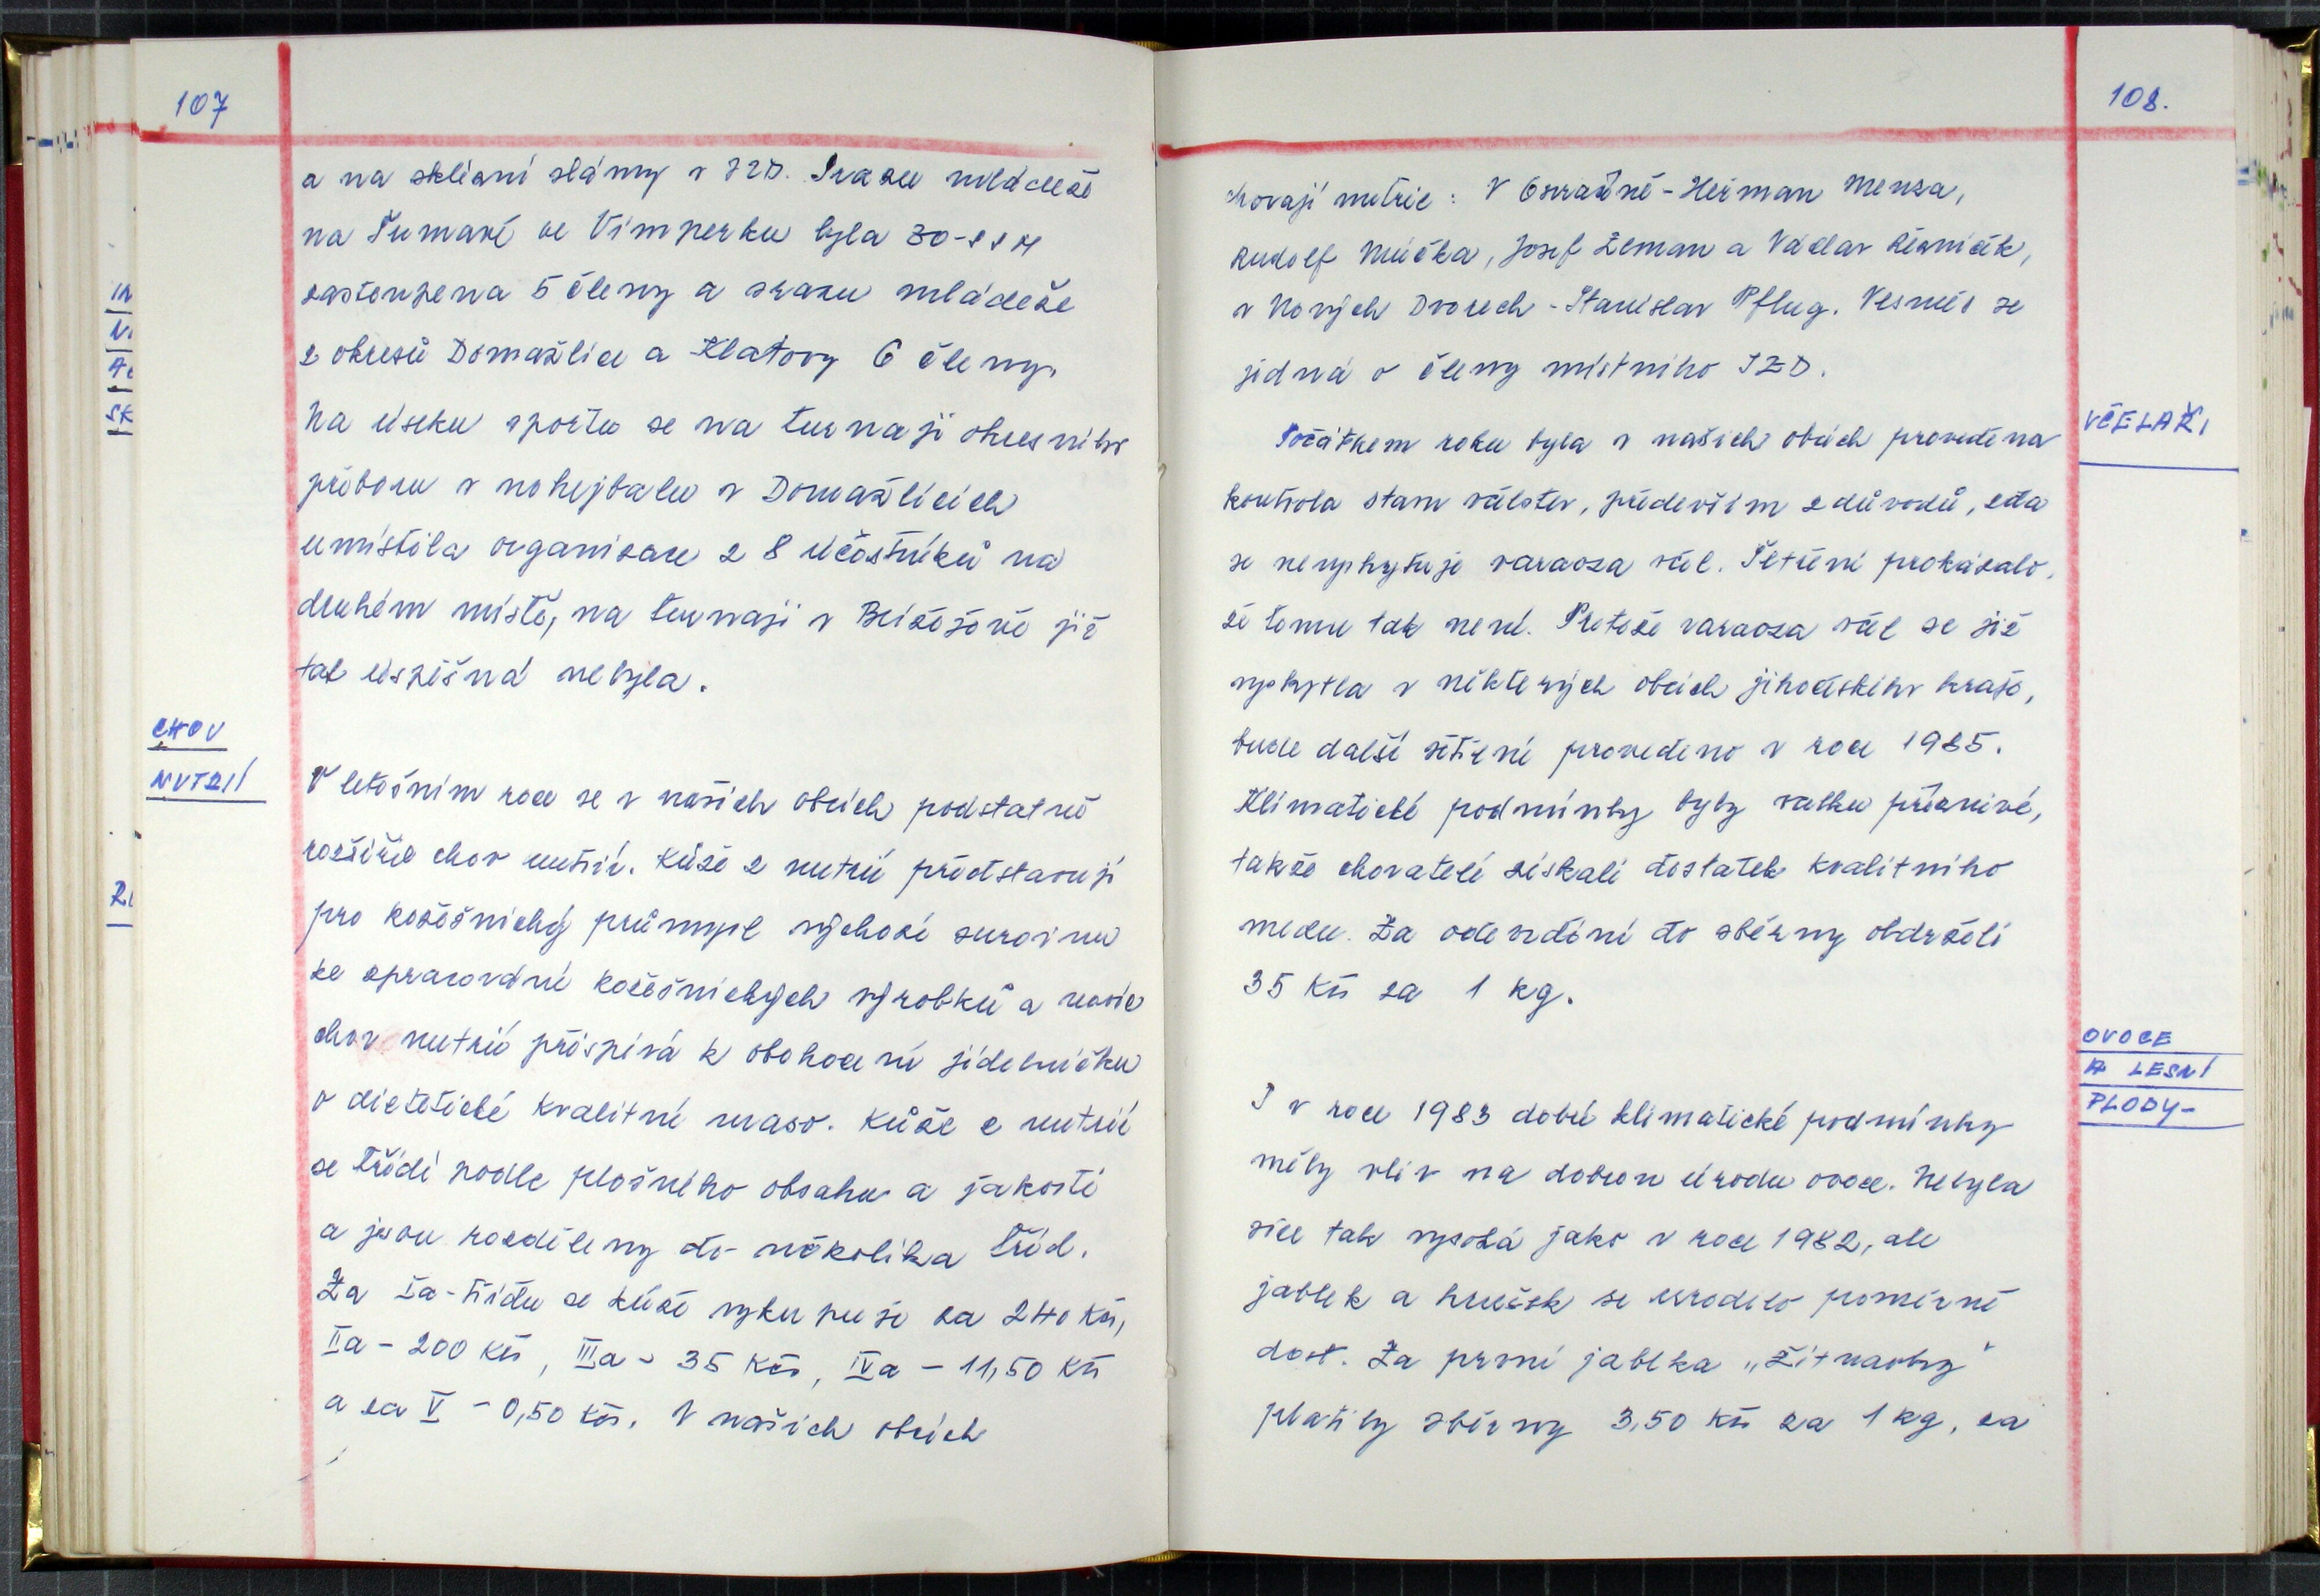 107
a na sklizni slámy v JZD. Srazu mládeže
na Šumavě ve Vimperku byla ZO-SSM
zastoupena 5 členy a srazu mládeže
z okresů Domažlice a Klatovy 6 členy.
Na úseku sportu se na turnaji okresního
přeboru v nohejbalu v Domažlicích
umístila organisace z 8 účástníků na
druhém místě, na turnaji v Brůdku již
tak úspěšná nebyla.
CHOV
NUTRIÍ
V letošním roce se v našich obcích podstatně
rozšířil chov nutrií. Kůže z nutrií představují
pro kožešnický průmysl výchozí surovinu
ke zpracování kožešnických výrobků a navíc
chov nutrií přispívá k obohacení jídelníčku
o dietetické kvalitní maso. Kůže z nutrií
se třídí podle plošného obsahu a jakosti
a jsou rozděleny do několika tříd.
Za Ia-třídu se kůže vykupuje za 240 Kčs,
IIa - 200 Kčs, IIIa - 35 Kčs, IVa - 11,50 Kčs
a za V - 0,50 Kčs. V našich obcích
108.
chovají nutrie: V Osvračíně - Heřman Menza,
Rudolf Múčka, Josef Zeman a Václav Řezníček,
v Nových Dvorech - Stanislav Pflug. Vesměs se
jedná o členy místního JZD.
VČELAŘI
Počátkem roku byla v našich obcích provedena
kontrola stavu včelstev, především z důvodů, zda
se nevyskytuje varaoza včel. Šetření prokázalo,
že tomu tak není. Protože varaoza včel se již
vyskytla v některých obcích jihočeského kraje,
bude další šetření provedeno v roce 1985.
Klimatické podmínky byly vcelku příznivé,
takže chovatelé získali dostatek kvalitního
medu. Za odevzdání do sběrny obdrželi
35 Kčs za 1 kg.
OVOCE
A LESNÍ
PLODY-
I v roce 1983 dobré klimatické podmínky
měly vliv na dobrou úrodu ovoce. Nebyla
sice tak vysoká jako v roce 1982, ale
jablek a hrušek se urodilo poměrně
dost. Za první jablka „Žitnavky"
platily sběrny 3,50 Kčs za 1 kg, za